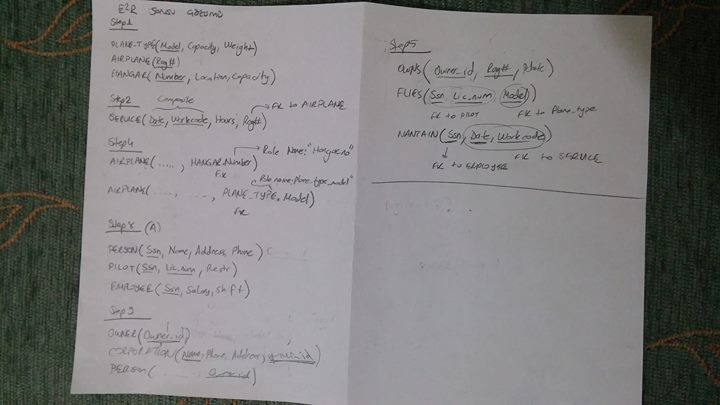 E2R Sorusu Çözümü
Step1
PLANE-TYPE(Model, Capacity, Weight)
AIRPLANE(Reg#)
HANGAR(Number, Location, Capacity)
Step2 Composite
FK to AIRPLANE
SERVICE(Date, Workcode, Hours, Reg#)
Step4
Role Name:"Hangar.no"
AIRPLANE(....., HANGAR.Number)
FK
Role name:plane_type_model"
AIRPLANE(...... ......, PLANE_TYPE.Model)
FK
Step8 (A)
PERSON(Ssn, Name, Address, Phone)
PILOT(Ssn, Lic.num, Restr)
EMPLOYEE(Ssn, Salary, Shift)
Step9
OWNER(Owner_id)
CORPORATION(Name, Phone, Address,
PERSON(
Step5
OWNS(Owner_id, Reg#, Pdate)
FLIES(Ssn, Lic_num, Model)
FK to PILOT FK to Plane_type
MANTAIN(Ssn, Date, Workcode)
FK to EMPLOYEE FK to SERVICE